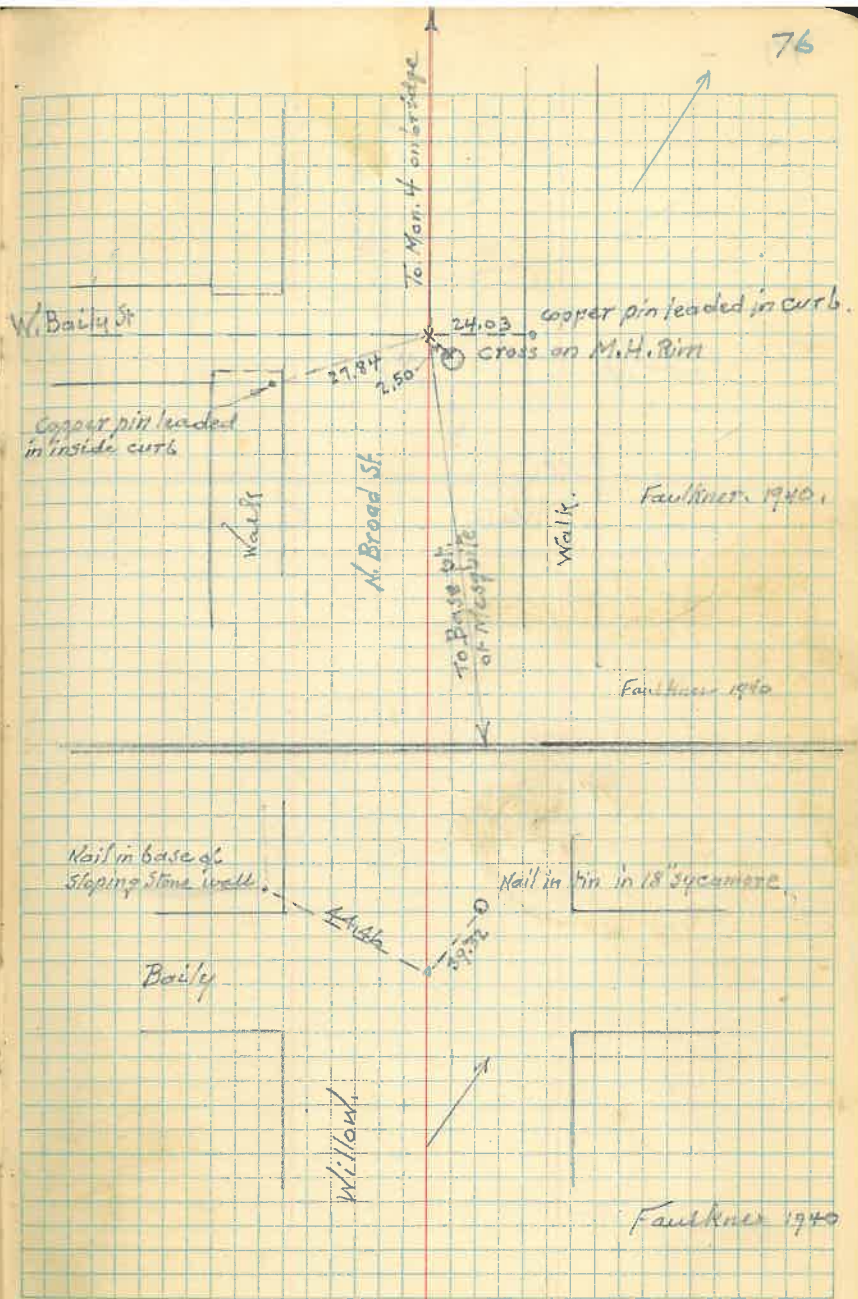 76
To Mon. 4 on bridge
W. Baily St
24.03
copper pin leaded in curb.
Cross on M.H. Rim
27.84
2.50
copper pin leaded
in inside curb
Walk
N. Broad St.
Walk.
Faulkner. 1940.
To Base pt.
of Mesquite
Faulkner 1940
Nail in base of
Sloping Stone wall.
Nail in tin in 18" sycamore.
44.46
39.32
Baily
Willow.
Faulkner 1940